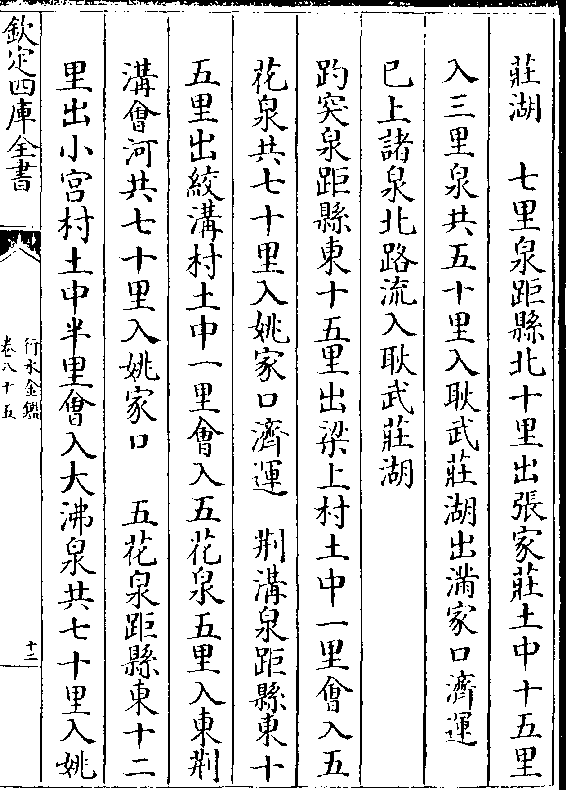 莊湖　七里泉距縣北十里出張家莊土中十五里
入三里泉共五十里入耿武莊湖出滿家口濟運
已上諸泉北路流入耿武莊湖
趵突泉距縣東十五里出梁上村土中一里會入五
花泉共七十里入姚家口濟運　荆溝泉距縣東十
五里出絞溝村土中一里會入五花泉五里入東荆
溝會河共七十里入姚家口　五花泉距縣東十二
里出小宫村土中半里會入大沸泉共七十里入姚
欽定四庫全書
行水金鑑
卷八十五
十二